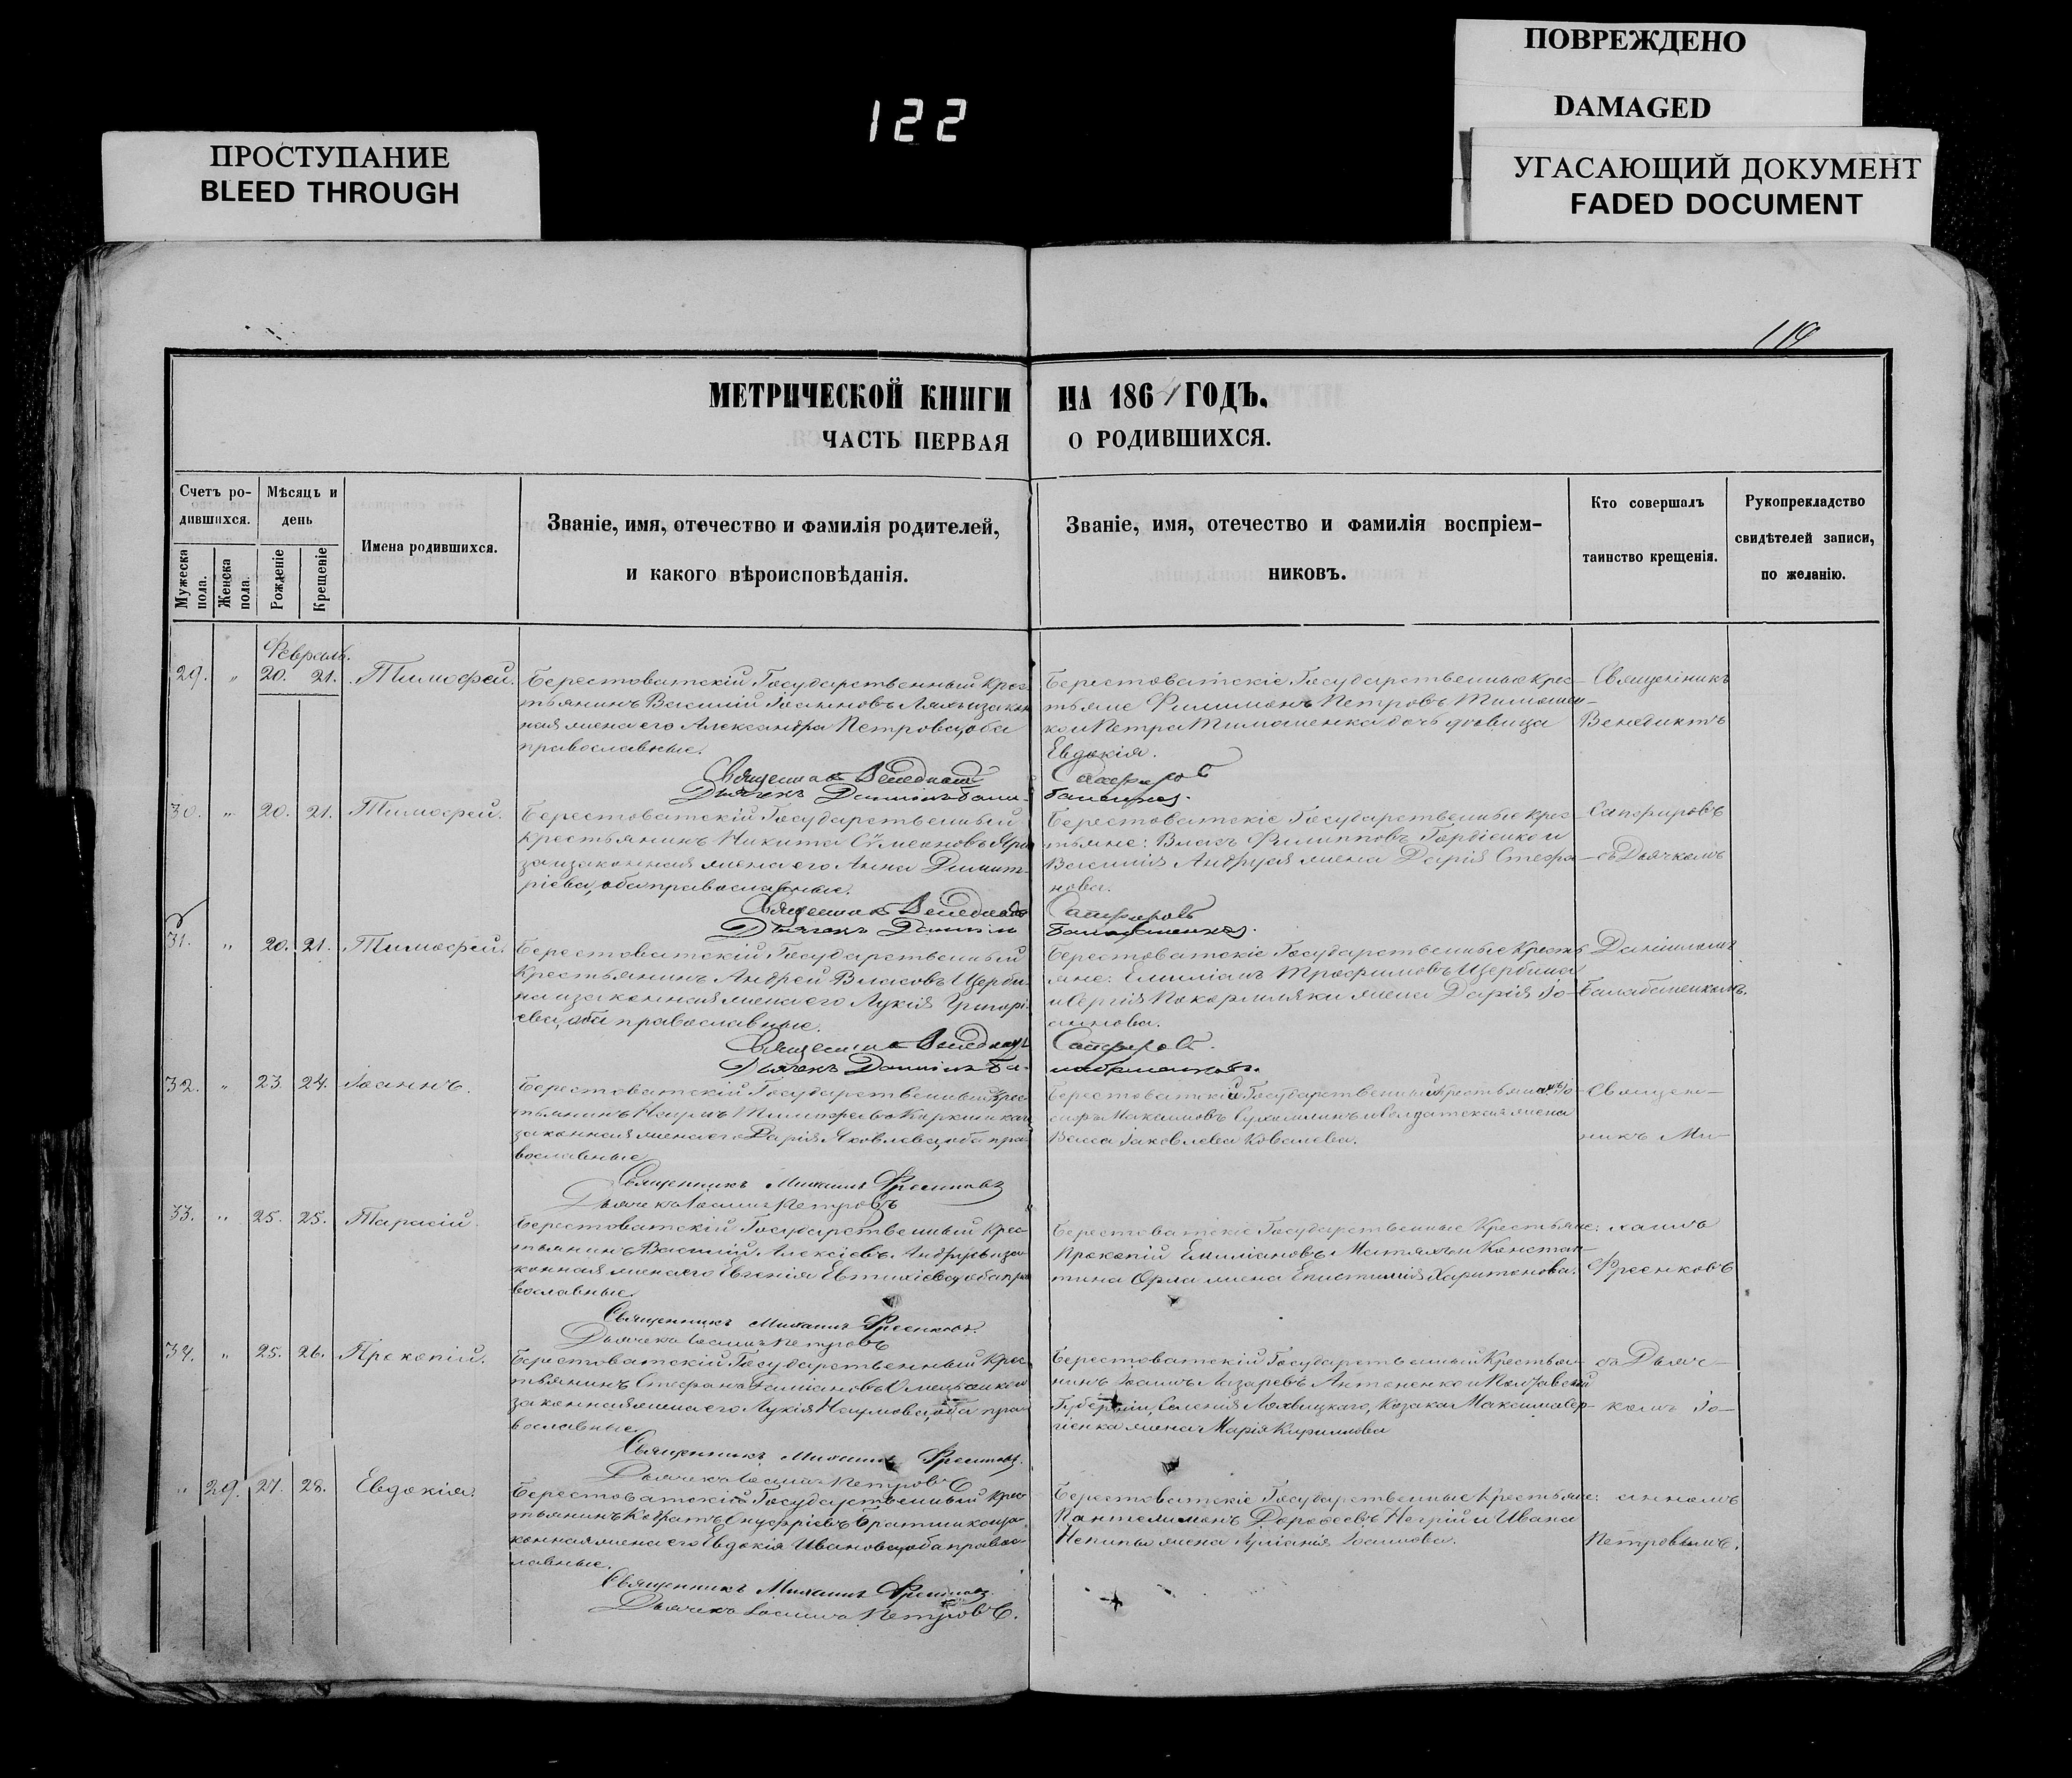 ПОВРЕЖДЕНО
DAMAGED
122
ПРОСТУПАНИЕ
BLEED THROUGH
УГАСАЮЩИЙ ДОКУМЕНТ
FADED DOCUMENT
119
МЕТРИЧЕСКОЙ КНИГИ НА 1864 ГОДЪ.
ЧАСТЬ ПЕРВАЯ О РОДИВШИХСЯ.
Счетъ ро-
дившихся.
Мужеска пола.
Женска пола.
Мѣсяцъ и
день
Рожденіе
Крещеніе
Имена родившихся.
Званіе, имя, отечество и фамилія родителей,
и какого вѣроисповѣданія.
Званіе, имя, отечество и фамилія воспріем-
никовъ.
Кто совершалъ
таинство крещенія.
Рукоприкладство
свидѣтелей записи,
по желанію.
Февраль.
29. " 20. 21. Тимофей.
Берестоватскій Государственный Крес-
тьянинъ Василій Іоанновъ Ляхъ и закон
ная жена его Александра Петрова, оба
православные.
Священникъ Венедиктъ
Дьячекъ Даніилъ Бала-
Берестоватскіе Государственные Крес-
тьяне Филимонъ Петровъ Тимошен-
ко и Петра Тимошенка дочь девица
Евдокія.
Сапфировъ
баненко.
Священникъ
Венедиктъ
30. " 20. 21. Тимофей.
Берестоватскій Государственный
Крестьянинъ Никита Сѵмеоновъ
законная жена его Анна Димит-
ріева, оба православные.
Священникъ Венедиктъ
Дьячекъ Даніилъ
Берестоватскіе Государственные Крес-
тьяне: Власъ Филипповъ Гордіенко и
Василія Андруся жена Дарія Стефа-
нова.
Сапфировъ
Балабаненко.
Сапфировъ
съ Дьячкомъ
31. " 20. 21. Тимофей.
Берестоватскій Государственный
Крестьянинъ Андрей Власовъ Щерби-
на и законная жена его Лукія Григорі-
ева, оба православные.
Священникъ Венедиктъ
Дьячекъ Даніилъ Ба-
Берестоватскіе Государственные Кресть
яне: Емиліанъ Трофимовъ Щербина
и Сергія Покормиляки жена Дарія Іо-
аннова.
Сапфировъ.
Даніиломъ
Балабаненкомъ.
32. " 23. 24. Іоаннъ.
Берестоватскій Государственный Крес-
тьянинъ Наумъ Тимофеевъ
законная жена его Дарія Яковлева, оба пра-
вославные
Священникъ Михаилъ Фреенковъ
Дьячекъ Іоаннъ Петровъ
Берестоватскій Государственный Крестьянинъ Іо-
сифъ Максимовъ Сухининъ и Солдатская жена
Васса Іаковлева Ковалева.
Священ-
никъ Ми-
33. " 25. 25. Тарасій.
Берестоватскій Государственный Крес-
тьянинъ Василій Алексіевъ Андрусь и за-
конная жена его Евгенія Евтихіева, оба пра
вославные.
Священникъ Михаилъ Фреенковъ.
Дьячекъ Іоаннъ Петровъ
Берестоватскіе Государственные Крестьяне:
Прокопій Емиліановъ Матяхъ и Констан-
тина Орла жена Епистимія Харитонова.
хаилъ
Фреенковъ
34. " 25. 26. Прокопій.
Берестоватскій Государственный Крес-
тьянинъ Стефанъ Даміановъ Омельченко и
законная жена его Лукія Наумова, оба пра-
вославные.
Священникъ Михаилъ Фреенковъ.
Дьячекъ Іоаннъ Петровъ
Берестоватскій Государственный Крестья-
нинъ Іоаннъ Лазаревъ Антоненко и Полтавской
Губерніи, Селенія Лохвицкаго, Козака Максима Сер-
гіенка жена Марія Кириллова
съ Дьяч-
комъ Іо-
" 29. 27. 28. Евдокія.
Берестоватскій Государственный Крес-
тьянинъ Кодратъ Онуфріевъ Братишко и за-
конная жена его Евдокія Иванова, оба правос-
лавные.
Священникъ Михаилъ Фреенковъ.
Дьячекъ Іоаннъ Петровъ.
Берестоватскіе Государственные Крестьяне:
Пантелимонъ Дорофеевъ Негрій и Ивана
Непипы жена Іуліанія Іоаннова.
анномъ
Петровымъ.